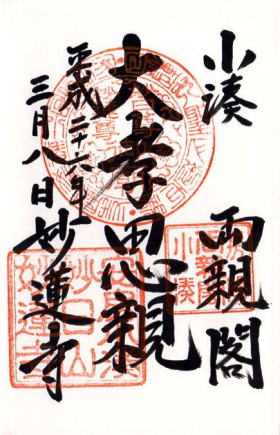 小湊 両親閣
大孝思親
平成二十六年
三月八日 妙蓮寺